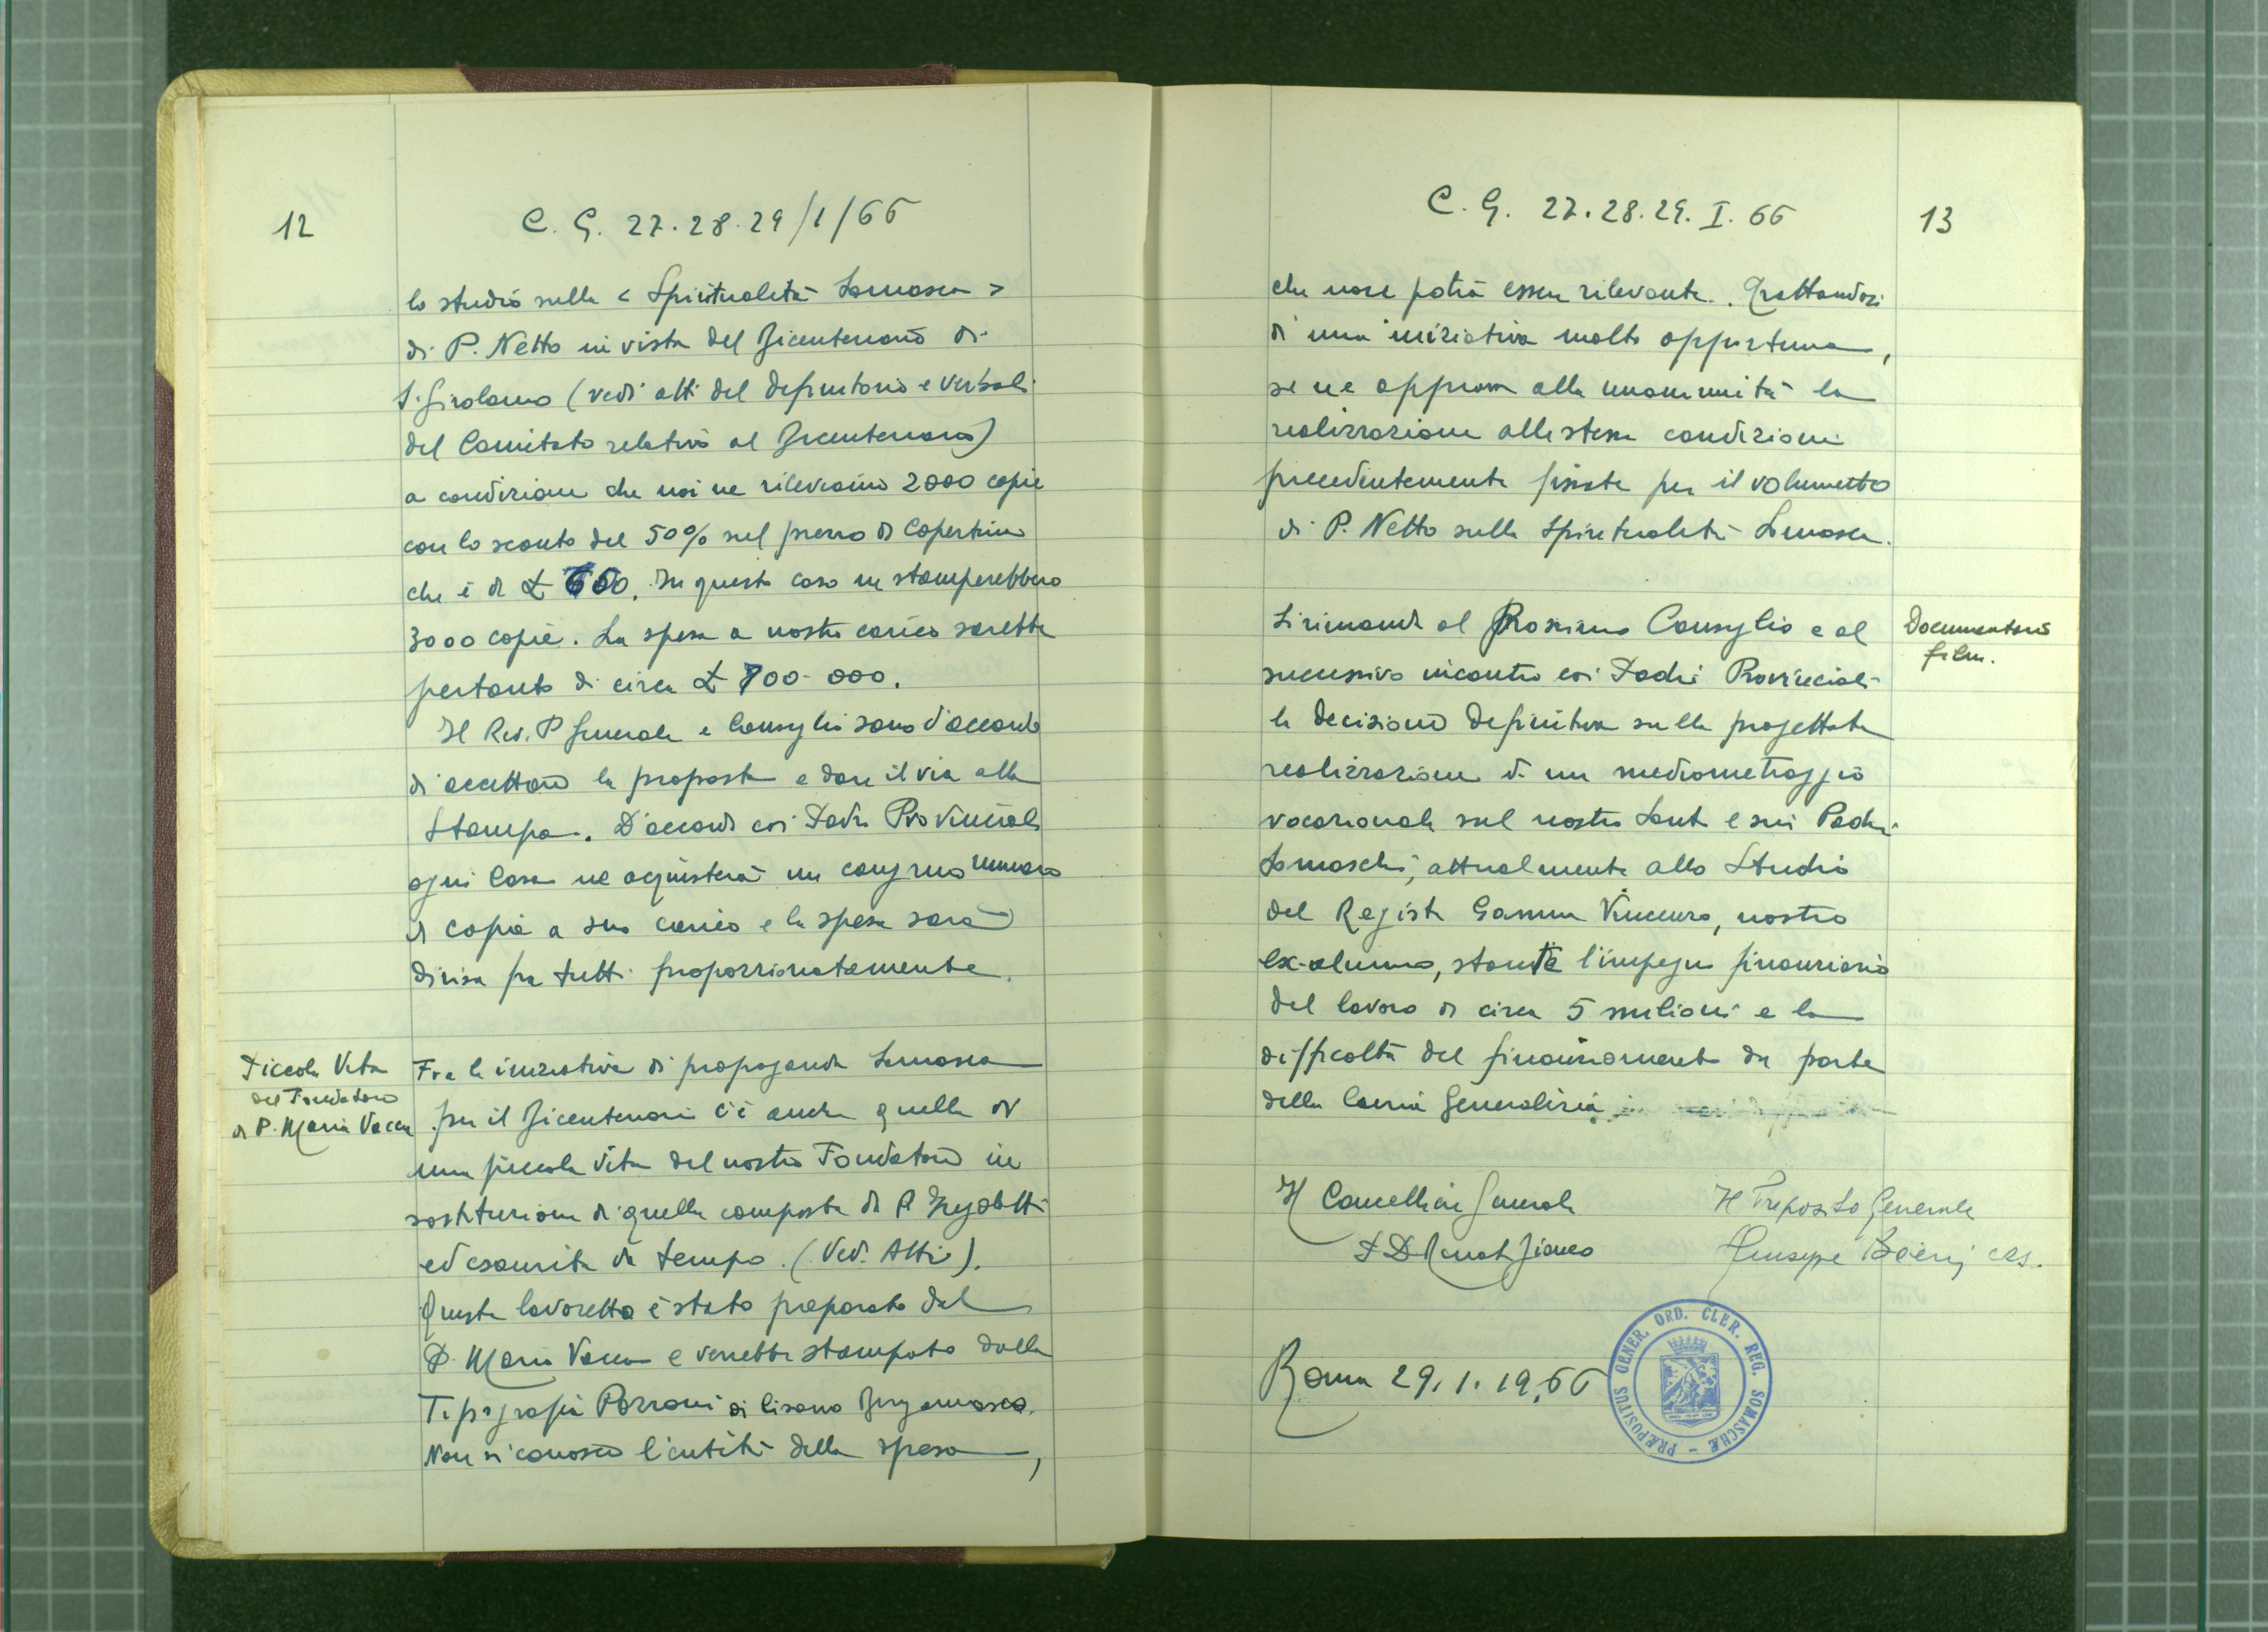 12
C. G. 27.28.29/1/66
lo studio sulla < Spiritualità Somasca >
di P. Netto in vista del Bicentenario di
S. Girolamo (vedi atti del Definitorio e Verbali
del Comitato relativo al Bicentenario)
a condizione che noi ne rileviamo 2000 copie
con lo sconto del 50% sul prezzo di Copertina
che è di £ 700. In questo caso ne stamperebbero
3000 copie. La spesa a nostro carico sarebbe
pertanto di circa £ 700.000.
Il Rev. P Generale e Consiglio sono d'accordo
di accettare la proposta e dare il via alla
Stampa. D'accordo coi Padri Provinciali
ogni Casa ne acquisterà un congruo numero
di copie a suo carico e la spesa sarà
divisa fra tutti proporzionatamente.
Piccola Vita
del Fondatore
di P. Mario Vacca
Fra le iniziative di propaganda Somasca
per il Bicentenario c'è anche quella di
una piccola vita del nostro Fondatore in
sostituzione di quella composta di P.
ed esaurita da tempo. (Vedi Atti).
Questo lavoretto è stato preparato dal
P. Mario Vacca e verrebbe stampato dalla
Tipografia Pozzoni di Cisano Bergamasco.
Non si conosce l'entità della spesa,
C. G. 27.28.29.I.66
13
che non potrà essere rilevante. Trattandosi
di una iniziativa molto opportuna,
se ne approva alla unanimità la
realizzazione alle stesse condizioni
precedentemente fissate per il volumetto
di P. Netto sulla Spiritualità Somasca.
Documentario
film.
Si rimanda al Prossimo Consiglio e al
successivo incontro coi Padri Provinciali
la decisione definitiva sulla progettata
realizzazione di un mediometraggio
vocazionale sul nostro Santo e sui Padri
Somaschi, attualmente allo Studio
del Regista Gamna Vincenzo, nostro
ex-alunno, stante l'impegno finanziario
del lavoro di circa 5 milioni e la
difficoltà del finanziamento da parte
della Cassa Generalizia.
Il Cancelliere Generale
P D Renato Bianco
Il Preposito Generale
Giuseppe Boeris crs.
Roma 29.1.1966
PRÆPOSITUS GENER. ORD. CLER. REG. SOMASCHÆ